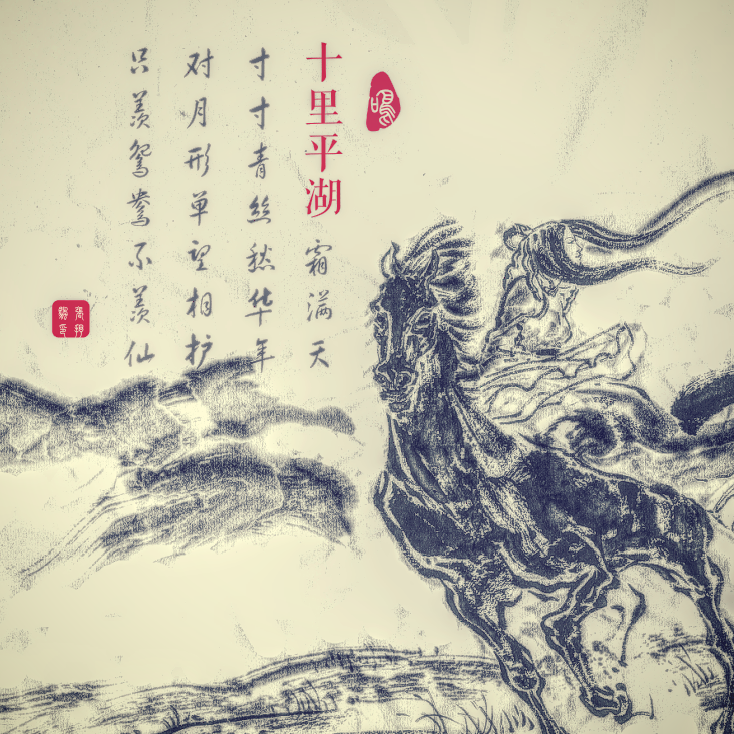 十里平湖霜满天
寸寸青丝愁华年
对月形单望相护
只羡鸳鸯不羡仙
鸣